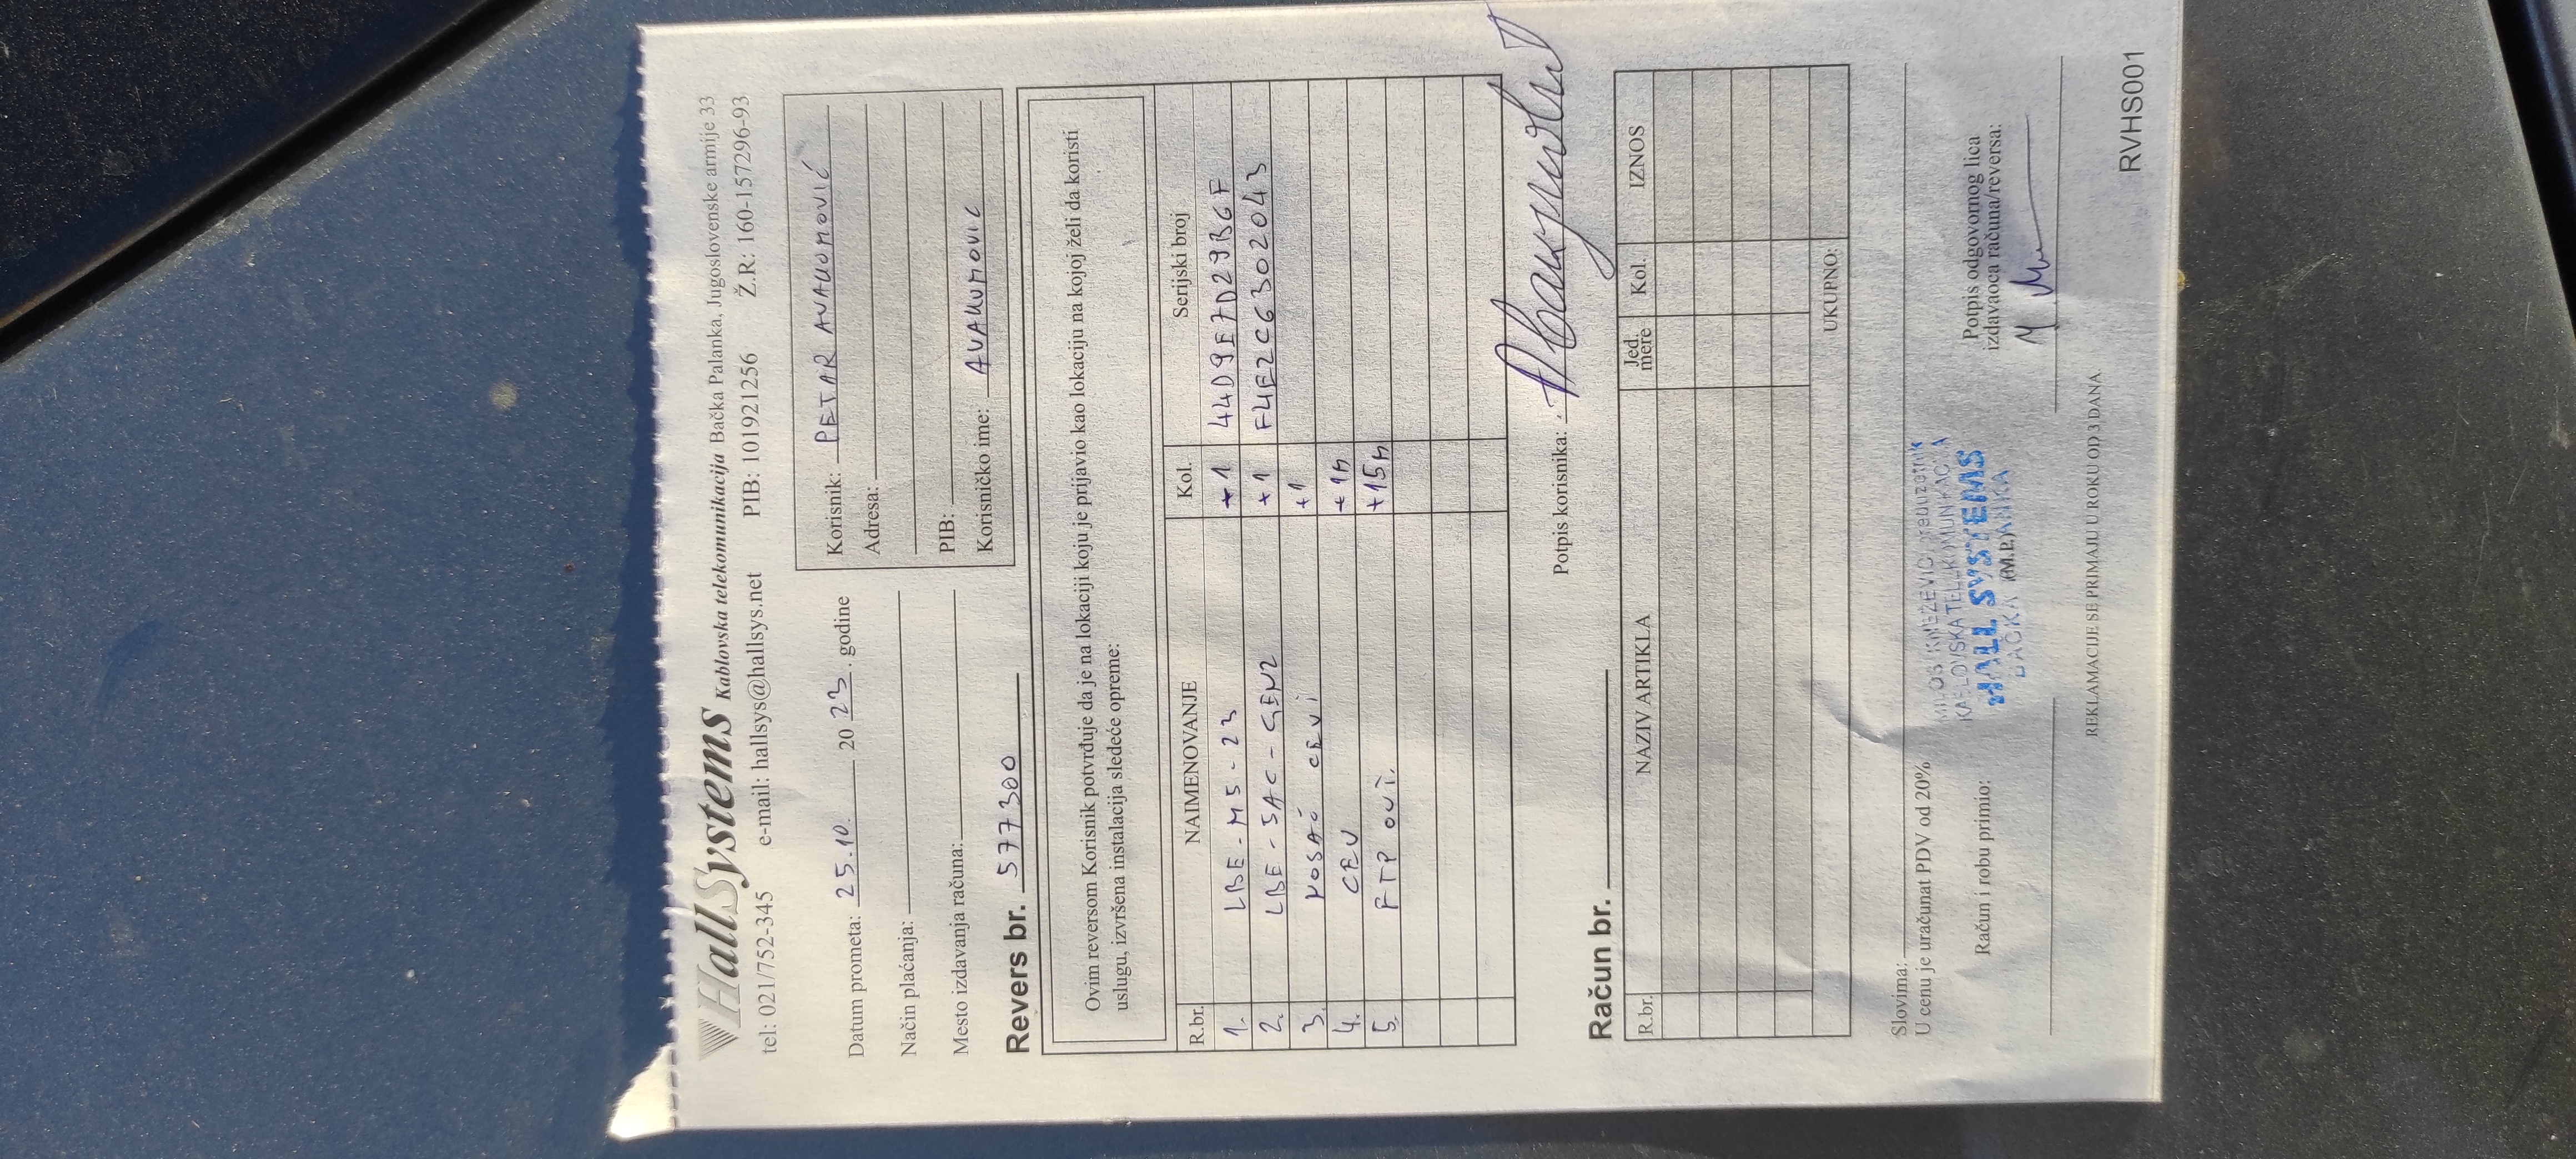 HallSystems Kablovska telekomunikacija Bačka Palanka, Jugoslovenske armije 33
tel: 021/752-345 e-mail: hallsys@hallsys.net PIB: 101921256 Ž.R: 160-157296-93
Datum prometa: 25.10. 2023. godine
Način plaćanja:
Mesto izdavanja računa:
Korisnik: PETAR AVAKUMOVIĆ
Adresa:
PIB:
Korisničko ime: AVAKUMOVIC
Revers br. 577300
Ovim reversom Korisnik potvrđuje da je na lokaciji koju je prijavio kao lokaciju na kojoj želi da koristi
uslugu, izvršena instalacija sledeće opreme:
R.br. NAIMENOVANJE Kol. Serijski broj
1. LBE-M5-23 +1 44D9E7D29B6F
2. LBE-5AC-GEN2 +1 F4E2C6302043
3. NOSAČ CEVI +1
4. CEV +1m
5. FTP OVJ. +15m
Potpis korisnika:
Račun br.
R.br. NAZIV ARTIKLA Jed. mere Kol. IZNOS
UKUPNO:
Slovima:
U cenu je uračunat PDV od 20%
Račun i robu primio:
MILOŠ KNEŽEVIĆ preduzetnik
KABLOVSKA TELEKOMUNIKACIJA
HALL SYSTEMS
BAČKA PALANKA
(M.P.)
Potpis odgovornog lica
izdavaoca računa/reversa:
REKLAMACIJE SE PRIMAJU U ROKU OD 3 DANA
RVHS001